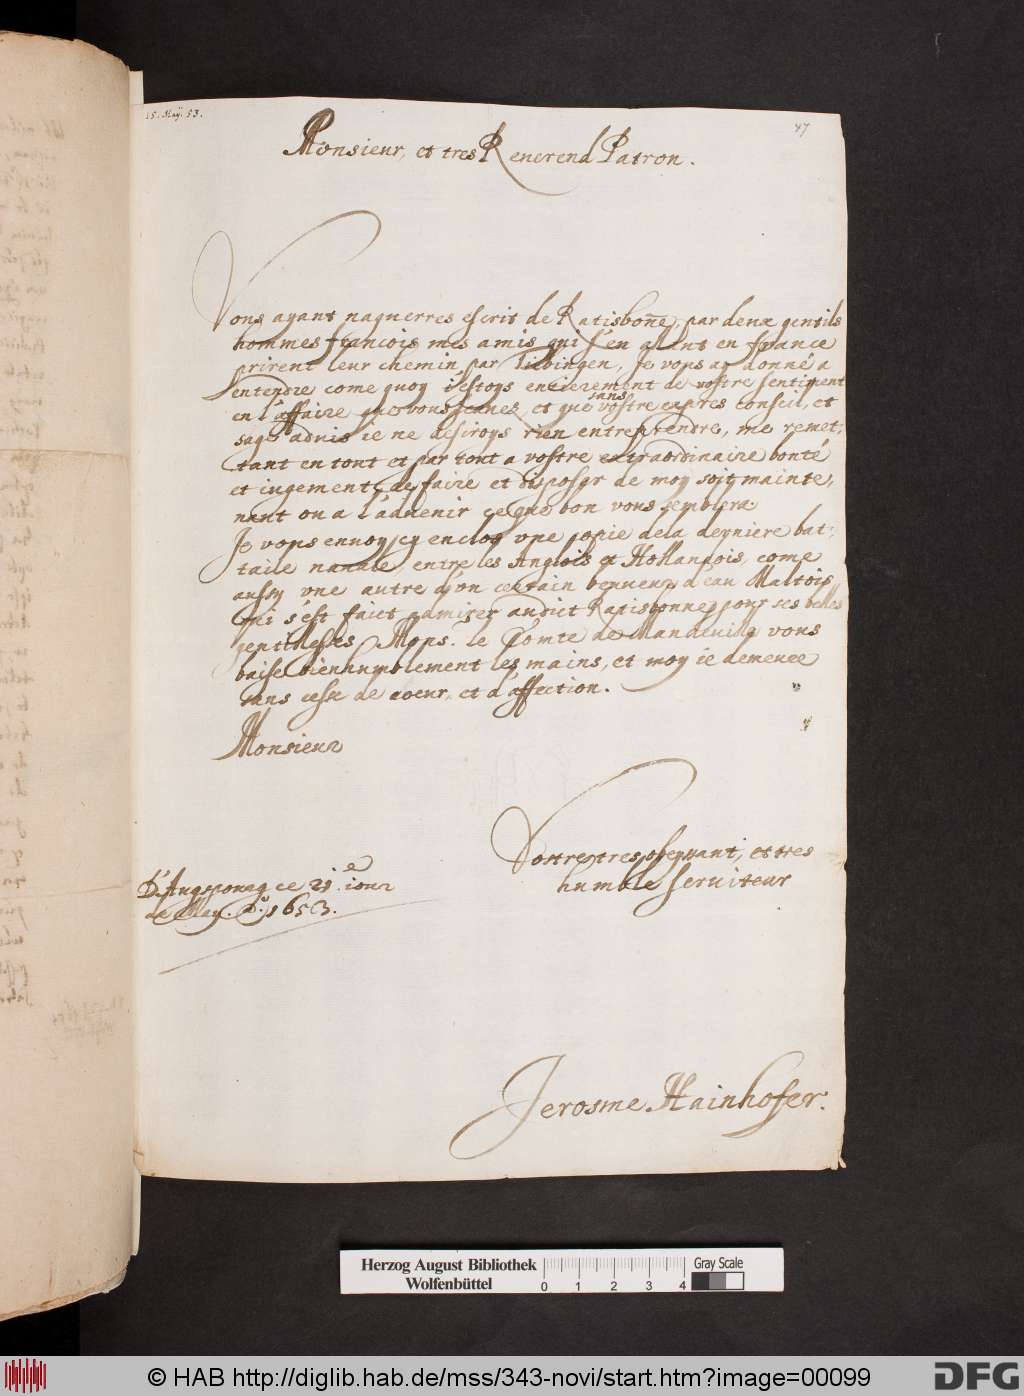 15. May. 53.
47
Monsieur, et tres Reuerend Patron.
Vous ayant naguerres escrit de Ratisbone, par deux gentils
hommes francois mes amis qui s'en alant en france
prirent leur chemin par Tübingen, Je vous ay donné a
entendre come quoy i'estoys entierement de vostre sentiment
en l'affaire que vous scaues, et que sans vostre expres conseil, et
sage aduis ie ne desiroys rien entreprendre, me remet:
tant en tout et par tout a vostre extraordinaire bonté
et iugement, de faire et disposer de moy soit mainte,
nant ou a l'aduenir ce que bon vous semblera.
Je vous enuoy cy enclos vne copie de la derniere bat:
taile nauale, entre les Anglois et Hollandois, come
aussy vne autre d'vn certain beuueur d'eau Maltois,
qui s'est faict admirer audict Ratisbonne pour ses belles
gentilesses. Mons. le Comte de Mandeuille vous
baise bien humblement les mains, et moy ie demeure
sans cesse de coeur, et d'affection.
Monsieur
Vostre tres obeyssant, et tres
humble seruiteur
D'Augspourg ce 21.e iour
de May. Ao. 1653.
Jerosme Hainhofer.
Herzog August Bibliothek
Wolfenbüttel
0 1 2 3 4
Gray Scale
© HAB http://diglib.hab.de/mss/343-novi/start.htm?image=00099
DFG